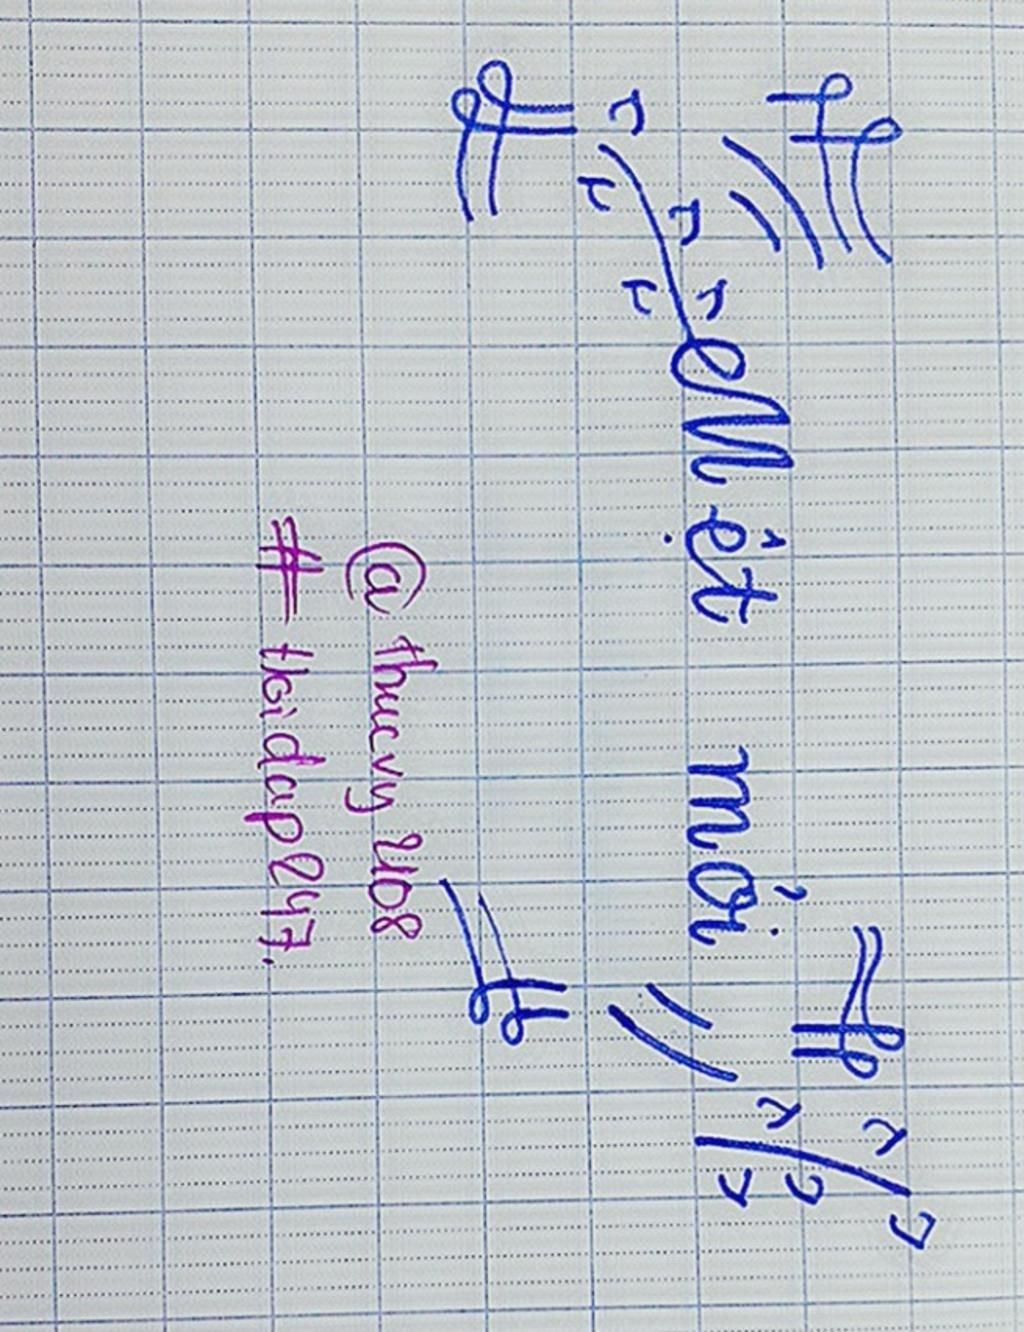 Mệt mỏi
@thucvy2108
#hoidap247.